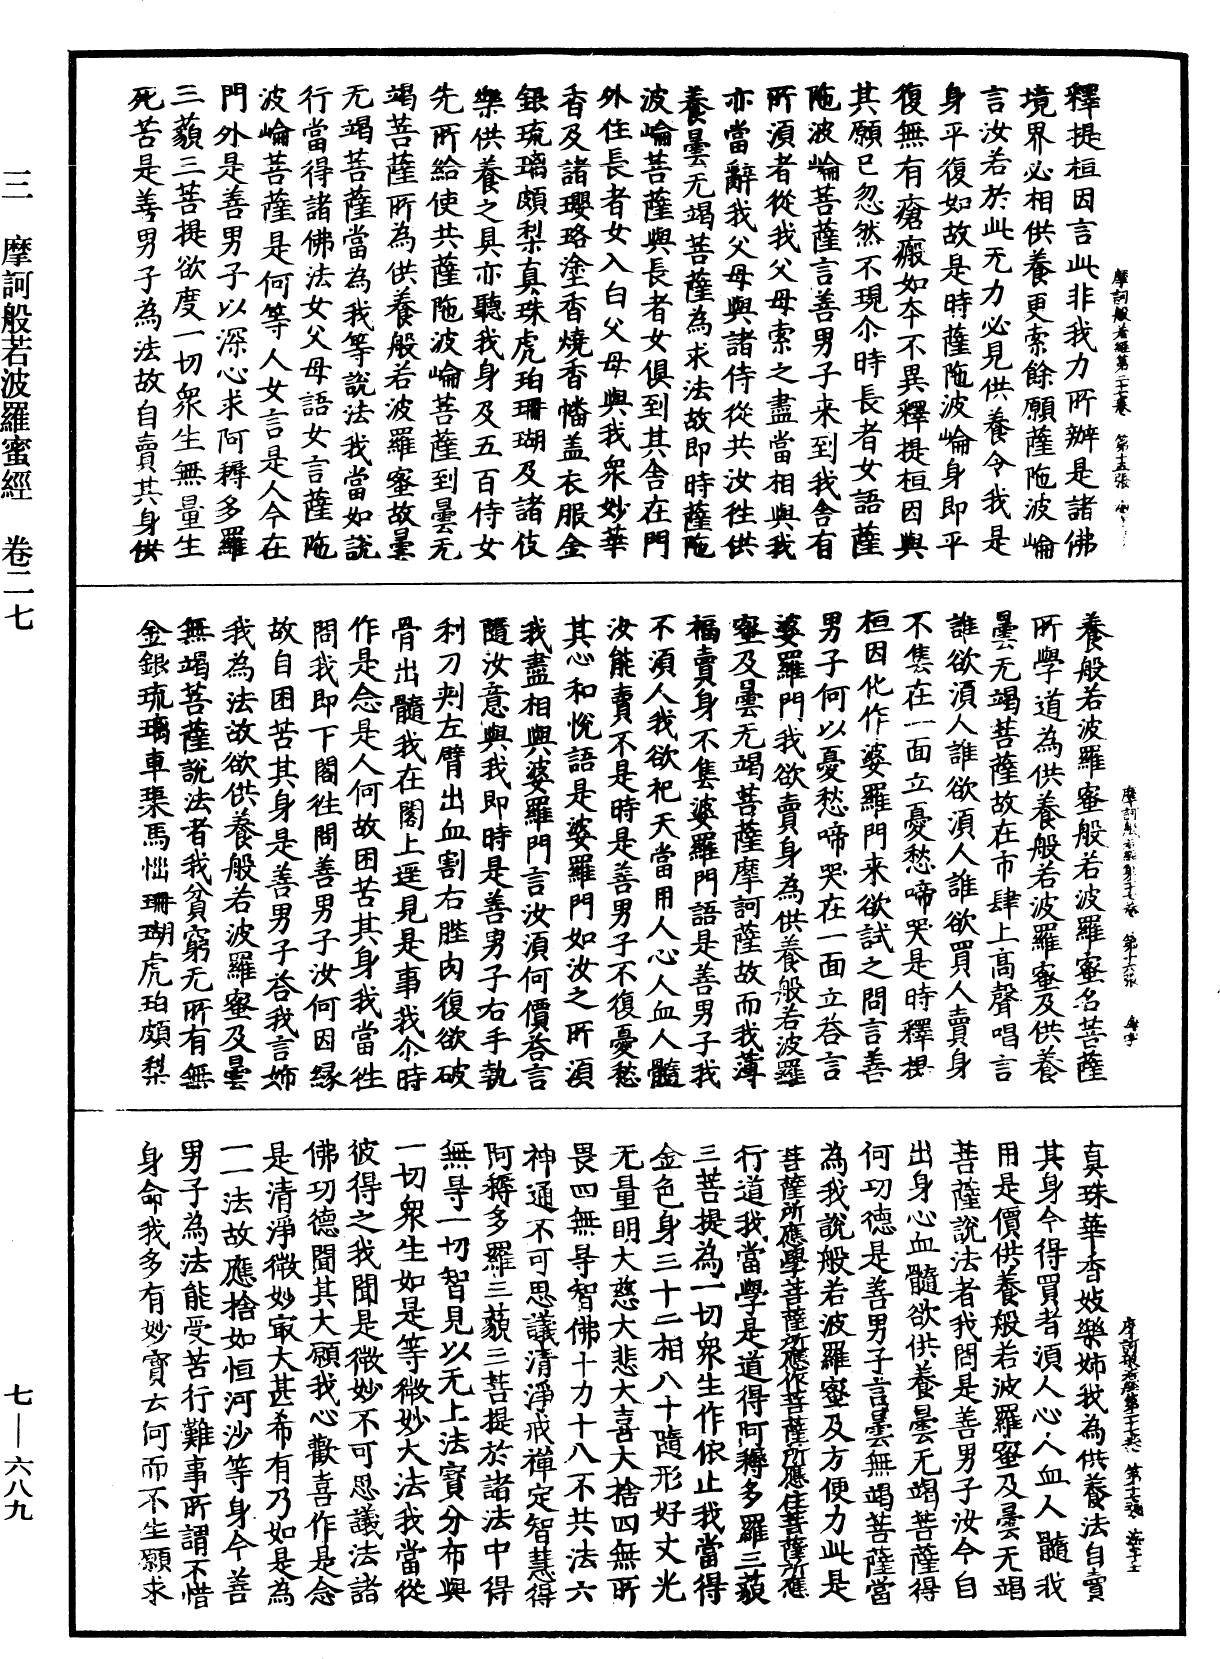 摩訶般若經第二十七卷 第十五張
釋提桓因言此非我力所辦是諸佛
境界必相供養更索餘願薩陁波崘
言汝若於此无力必見供養令我是
身平復如故是時薩陁波崘身即平
復無有瘡瘢如夲不異釋提桓因與
其願已忽然不現尒時長者女語薩
陁波崘菩薩言善男子来到我舎有
所湏者從我父母索之盡當相與我
亦當辭我父母與諸侍從共汝徃供
養曇无竭菩薩為求法故即時薩陁
波崘菩薩與長者女俱到其舎在門
外住長者女入白父母與我衆妙華
香及諸瓔珞塗香燒香幡盖衣服金
銀琉璃頗梨真珠虎珀珊瑚及諸伎
樂供養之具亦聽我身及五百侍女
先所給使共薩陁波崘菩薩到曇无
竭菩薩所為供養般若波羅蜜故曇
无竭菩薩當為我等說法我當如說
行當得諸佛法女父母語女言薩陁
波崘菩薩是何等人女言是人今在
門外是善男子以深心求阿耨多羅
三藐三菩提欲度一切衆生無量生
死苦是善男子為法故自賣其身供
摩訶般若經第二十七卷 第十六張
養般若波羅蜜般若波羅蜜名菩薩
所學道為供養般若波羅蜜及供養
曇无竭菩薩故在市肆上高聲唱言
誰欲湏人誰欲湏人誰欲買人賣身
不售在一面立憂愁啼哭是時釋提
桓因化作婆羅門来欲試之問言善
男子何以憂愁啼哭在一面立荅言
婆羅門我欲賣身為供養般若波羅
蜜及曇无竭菩薩摩訶薩故而我薄
福賣身不售婆羅門語是善男子我
不湏人我欲祀天當用人心人血人髓
汝能賣不是時是善男子不復憂愁
其心和悅語是婆羅門如汝之所湏
我盡相與婆羅門言汝湏何價荅言
隨汝意與我即時是善男子右手執
利刀刾左臂出血割右髀肉復欲破
骨出髓我在閣上遥見是事我尒時
作是念是人何故困苦其身我當徃
問我即下閣徃問善男子汝何因縁
故自困苦其身是善男子荅我言姉
我為法故欲供養般若波羅蜜及曇
無竭菩薩說法者我貧窮无所有無
金銀琉璃車𤦲馬𤦲珊瑚虎珀頗梨
摩訶般若經第二十七卷 第十七張
真珠華香妓樂姉我為供養法自賣
其身今得買者湏人心人血人髓我
用是價供養般若波羅蜜及曇无竭
菩薩說法者我問是善男子汝今自
出身心血髓欲供養曇无竭菩薩得
何功德是善男子言曇無竭菩薩當
為我說般若波羅蜜及方便力此是
菩薩所應學菩薩所應作菩薩所應住菩薩所應
行道我當學是道得阿耨多羅三藐
三菩提為一切衆生作依止我當得
金色身三十二相八十隨形好丈光
无量明大慈大悲大喜大捨四無所
畏四無㝵智佛十力十八不共法六
神通不可思議清淨戒禪定智慧得
阿耨多羅三藐三菩提於諸法中得
無㝵一切智見以无上法寶分布與
一切衆生如是等微妙大法我當從
彼得之我聞是微妙不可思議法諸
佛功德聞其大願我心歡喜作是念
是清淨微妙㝡大甚希有乃如是為
一一法故應捨如恒河沙等身今善
男子為法能受苦行難事所謂不惜
身命我多有妙寶云何而不生願求
三 摩訶般若波羅蜜經 卷二七
七—六八九